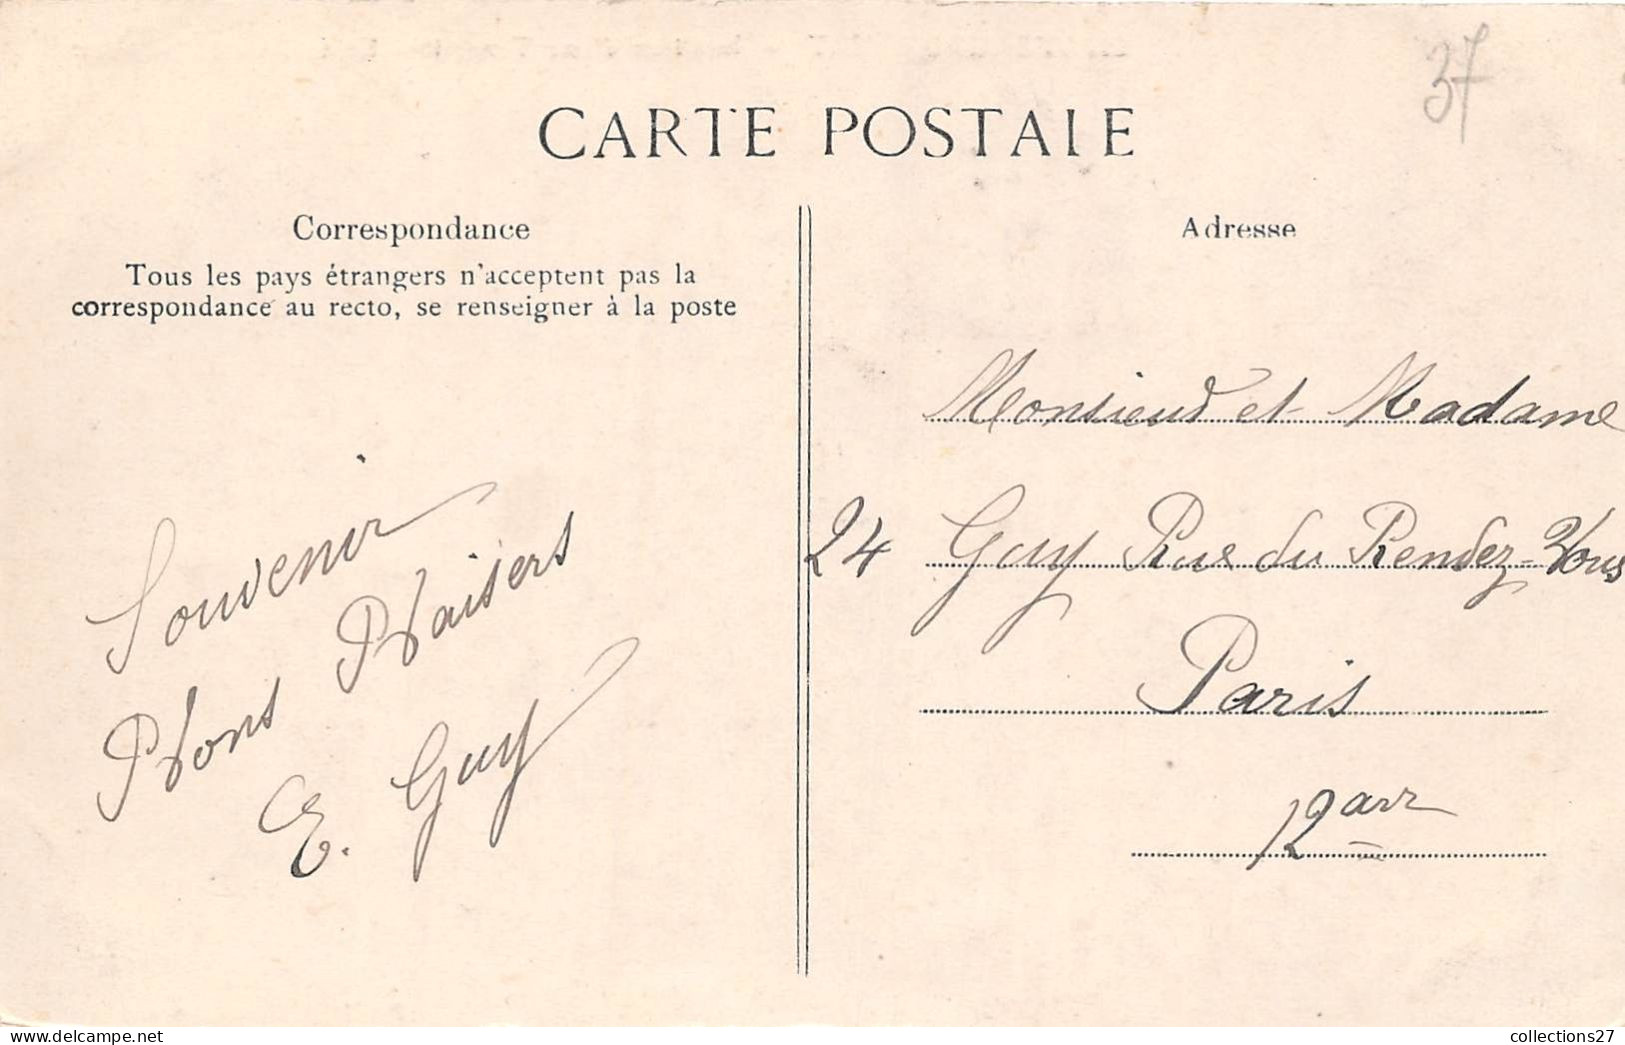 37
CARTE POSTALE
Correspondance
Tous les pays étrangers n'acceptent pas la
correspondance au recto, se renseigner à la poste
Souvenir
Bons Baisers
E. Guy
Adresse
Monsieur et Madame
24 Guy Rue du Rendez-Vous
Paris
12 arr
collections27